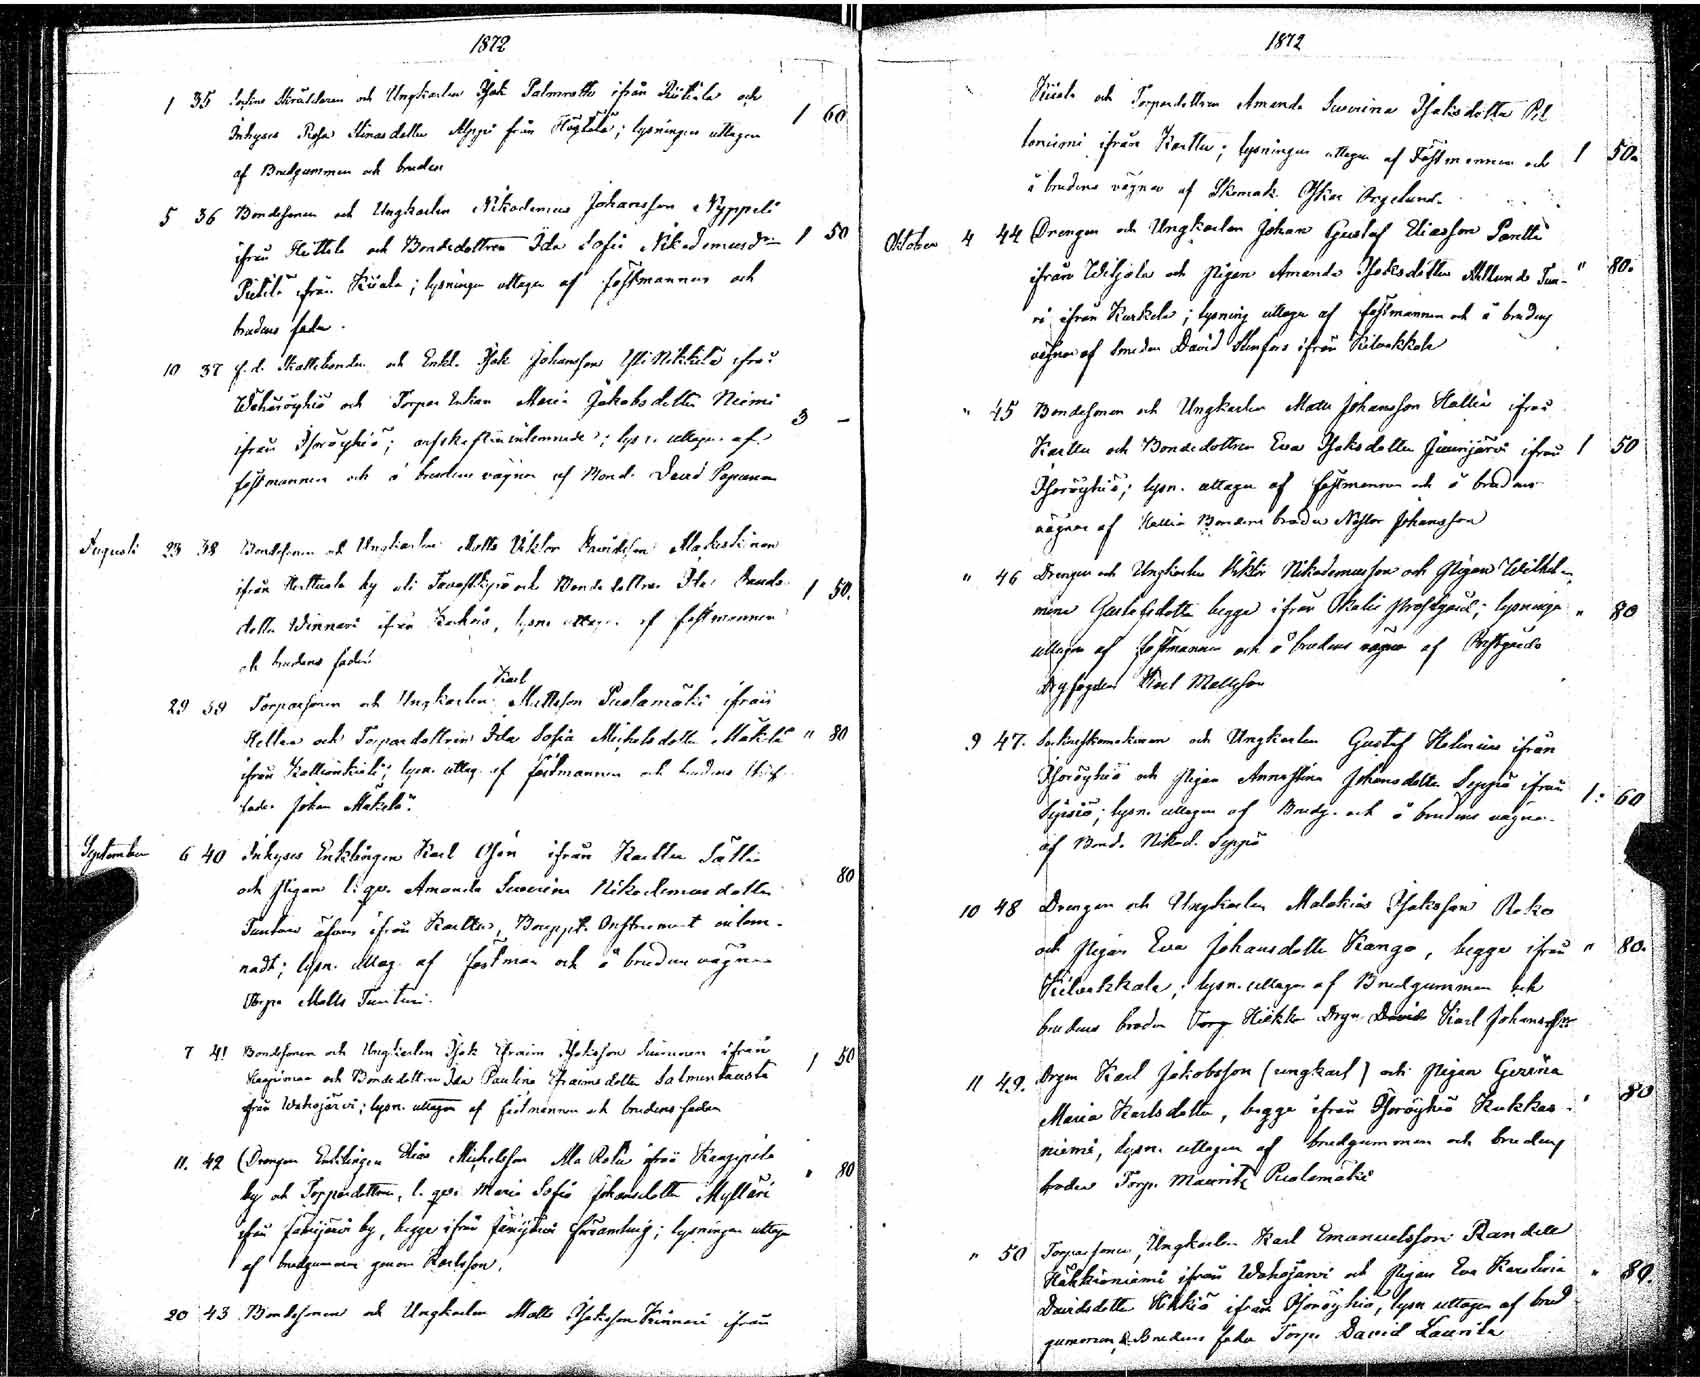 1872
1 35 Socknes Skräddaren och Ungkarlen Isak Palmroth ifrån Riitiala och
Inhyses Rosa Stinasdotter Alppi från ; lysningen uttagen 1 60
af Brudgummen och bruden
5 36 Bondesonen och Ungkarlen Nikodemus Johansson Nyppeli
ifrån Heittola och Bondedottren Ida Sofia Nikodemusdr 1 50
Pietilä ifrån Kiiala; lysningen uttagen af fästmannen och
brudens fader.
10 37 f.d. Skattebonden och Enkl. Isak Johansson Yli Nikkilä ifrån
Wähäröyhiö och Torpar Enkan Maria Jakobsdotter Niemi 3 —
ifrån Isoröyhiö; inlemnade; lysn. uttagen af
fästmannen och å brudens vägnar af Bond. David Papunen
Augusti 23 38 Bondesonen och Ungkarlen Matts Viktor Davidsson
ifrån Herttuala by och Bondedottren Ida
dotter Winnari ifrån , lysn. uttagen af fästmannen 1 50.
och brudens fader
Karl
29 39 Torparsonen och Ungkarlen Mattsson Puolamäki ifrån
och Torpardottren Ida Sofia Michelsdotter Mäkilä " 80
ifrån ; lysn. uttag. af fästmannen och brudens
fader Johan Mäkelä.
September 6 40 Inhyses Enklingen Karl ifrån Karttu Sälli
och Pigan l. qv. Amanda Severina Nikodemusdotter 80
äfven ifrån Karttu, Bouppt. Instrument inlem-
nadt; lysn. uttag. af fästman och å brudens vägnar
Torp. Matts Tunturi.
7 41 Bondesonen och Ungkarlen Isak Efraim Isaksson Suominen ifrån
och Bondedottren Ida Paulina Efraimsdotter Salmentausta 1 50
ifrån Wahojärvi; lysn. uttagen af fästmannen och brudens fader
11. 42 (Drengen Enklingen Elias Michelsson Ala Rotu ifrån
by och Torpardottren, l. qv. Maria Sofia Johansdotter Mylläri " 80
ifrån by, begge ifrån församling; lysningen uttagen
af brudgummen genom Karlsson.
20 43 Bondesonen och Ungkarlen Matts Isaksson Kinnari ifrån
1872
Kiiala och Torpardottren Amanda Severina Isaksdotter Pel
toniemi ifrån Karttu; lysningen uttagen af Fästmannen och 1 50.
å brudens vägnar af Oskar
Oktober 4 44 (Drengen och Ungkarlen Johan Gustaf Eliasson Panttu
ifrån Wiljala och Pigan Amanda Isaksdotter Tuo- " 80.
ri ifrån Kurkela; lysning uttagen af fästmannen och å brudens
vägnar af Smeden David Stenfors ifrån Kilvakkala
" 45 Bondesonen och Ungkarlen Matts Johansson Hallia ifrån
Karttu och Bondedottren Eva Isaksdotter Jaanijärvi ifrån 1 50
Isoröyhiö; lysn. uttagen af fästmannen och å brudens
vägnar af Hallia Bondens broder Nestor Johansson
" 46 Drengen och Ungkarlen Viktor Nikodemusson och Pigan Wilhel-
mina Gustafsdotter begge ifrån Ikalis Prostgård; lysningen " 80
uttagen af fästmannen och å brudens vägnar af Prostgårds
Drgfogden Karl Mattsson
9 47. Sockneskomakaren och Ungkarlen Gustaf Helenius ifrån
Isoröyhiö och Pigan Annastina Johansdotter Seppä ifrån
Sipsiö; lysn. uttagen af Brudg. och å brudens vägnar 1: 60
af Bond. Nikod. Seppä
10 48 Drengen och Ungkarlen Malakias Isaksson Roko
och Pigan Eva Johansdotter Kango, begge ifrån " 80.
Kilvakkala; lysn. uttagen af Brudgummen och
brudens broder Torp Heikka Drgn David Karl Johansson
11 49. Drgen Karl Jakobsson (ungkarl) och Pigan Gervina
Maria Karlsdotter, begge ifrån Isoröyhiö Kukkas- " 80
niemi, lysn. uttagen af brudgummen och brudens
broder Torp. Mauritz Puolamäki
" 50 Torparsonen, Ungkarlen Karl Emanuelsson Randell
Häkkiäniemi ifrån Wahojärvi och Pigan Eva Karolina " 80.
Davidsdotter Hirkiö ifrån Isoröyhiö, lysn. uttagen af brud
gummen & Brudens fader Torp. David Laurila